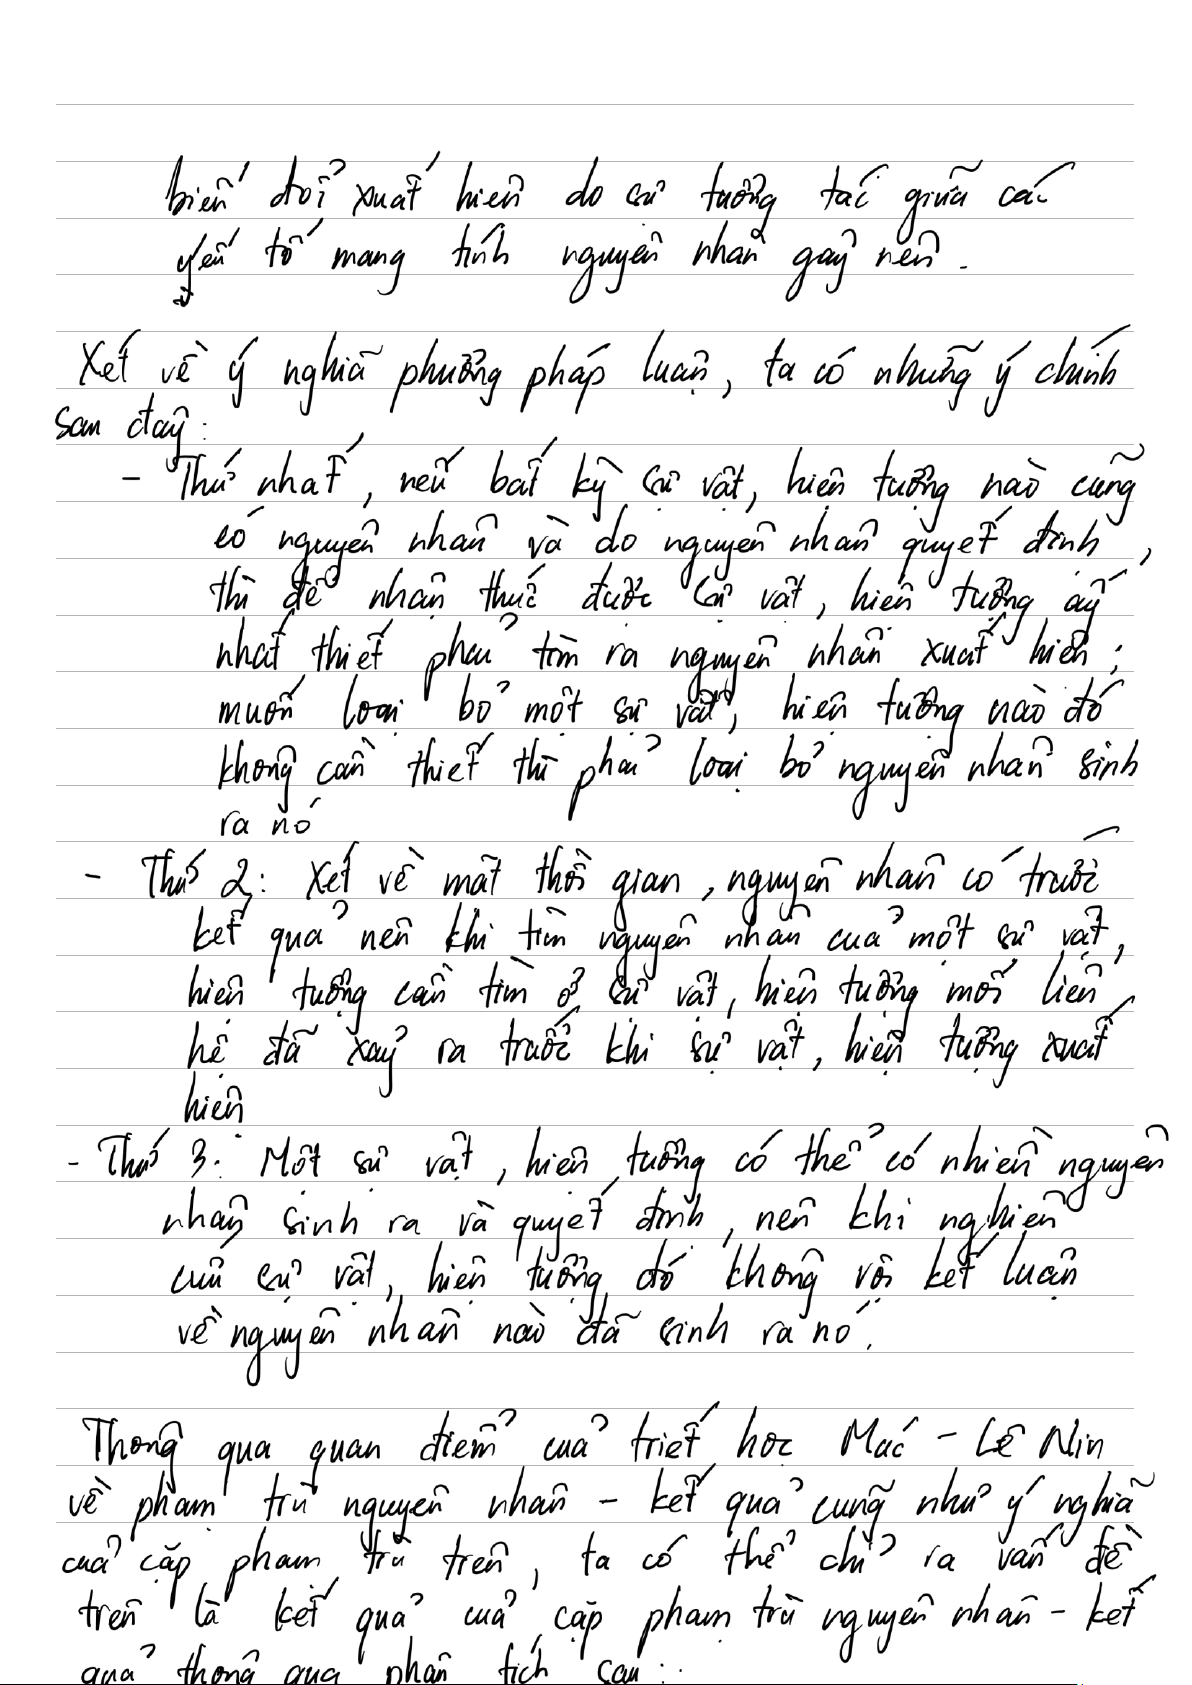 biến đổi xuất hiện do sự tương tác giữa các
yếu tố mang tính nguyên nhân gây nên.
Xét về ý nghĩa phương pháp luận, ta có những ý chính
sau đây:
- Thứ nhất, nếu bất kỳ sự vật, hiện tượng nào cũng
có nguyên nhân và do nguyên nhân quyết định,
thì để nhận thức được sự vật, hiện tượng ấy
nhất thiết phải tìm ra nguyên nhân xuất hiện;
muốn loại bỏ một sự vật, hiện tượng nào đó
không cần thiết thì phải loại bỏ nguyên nhân sinh
ra nó
- Thứ 2: Xét về mặt thời gian, nguyên nhân có trước
kết quả nên khi tìm nguyên nhân của một sự vật,
hiện tượng cần tìm ở sự vật, hiện tượng mối liên
hệ đã xảy ra trước khi sự vật, hiện tượng xuất
hiện
- Thứ 3: Một sự vật, hiện tượng có thể có nhiều nguyên
nhân sinh ra và quyết định, nên khi nghiên
cứu sự vật, hiện tượng đó không vội kết luận
về nguyên nhân nào đã sinh ra nó.
Thông qua quan điểm của triết học Mác - Lê Nin
về phạm trù nguyên nhân - kết quả cũng như ý nghĩa
của cặp phạm trù trên, ta có thể chỉ ra vấn đề
trên là kết quả của cặp phạm trù nguyên nhân - kết
quả thông qua phân tích sau: